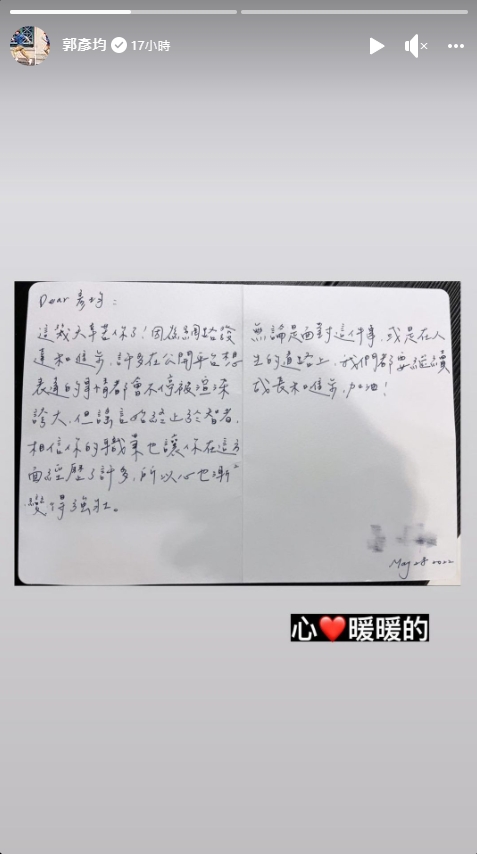 郭彥均 17小時
Dear 彥均：
這幾天辛苦你了！因為網路發
達和進步，許多在公開平台想
表達的事情都會不停被渲染
誇大，但謠言始終止於智者，
相信你的職業也讓你在這方
面經歷了許多，所以心也漸漸
變得強壯。
無論是面對這件事，或是在人
生的道路上，我們都要繼續
成長和進步，加油！
May 28 2022
心❤️暖暖的